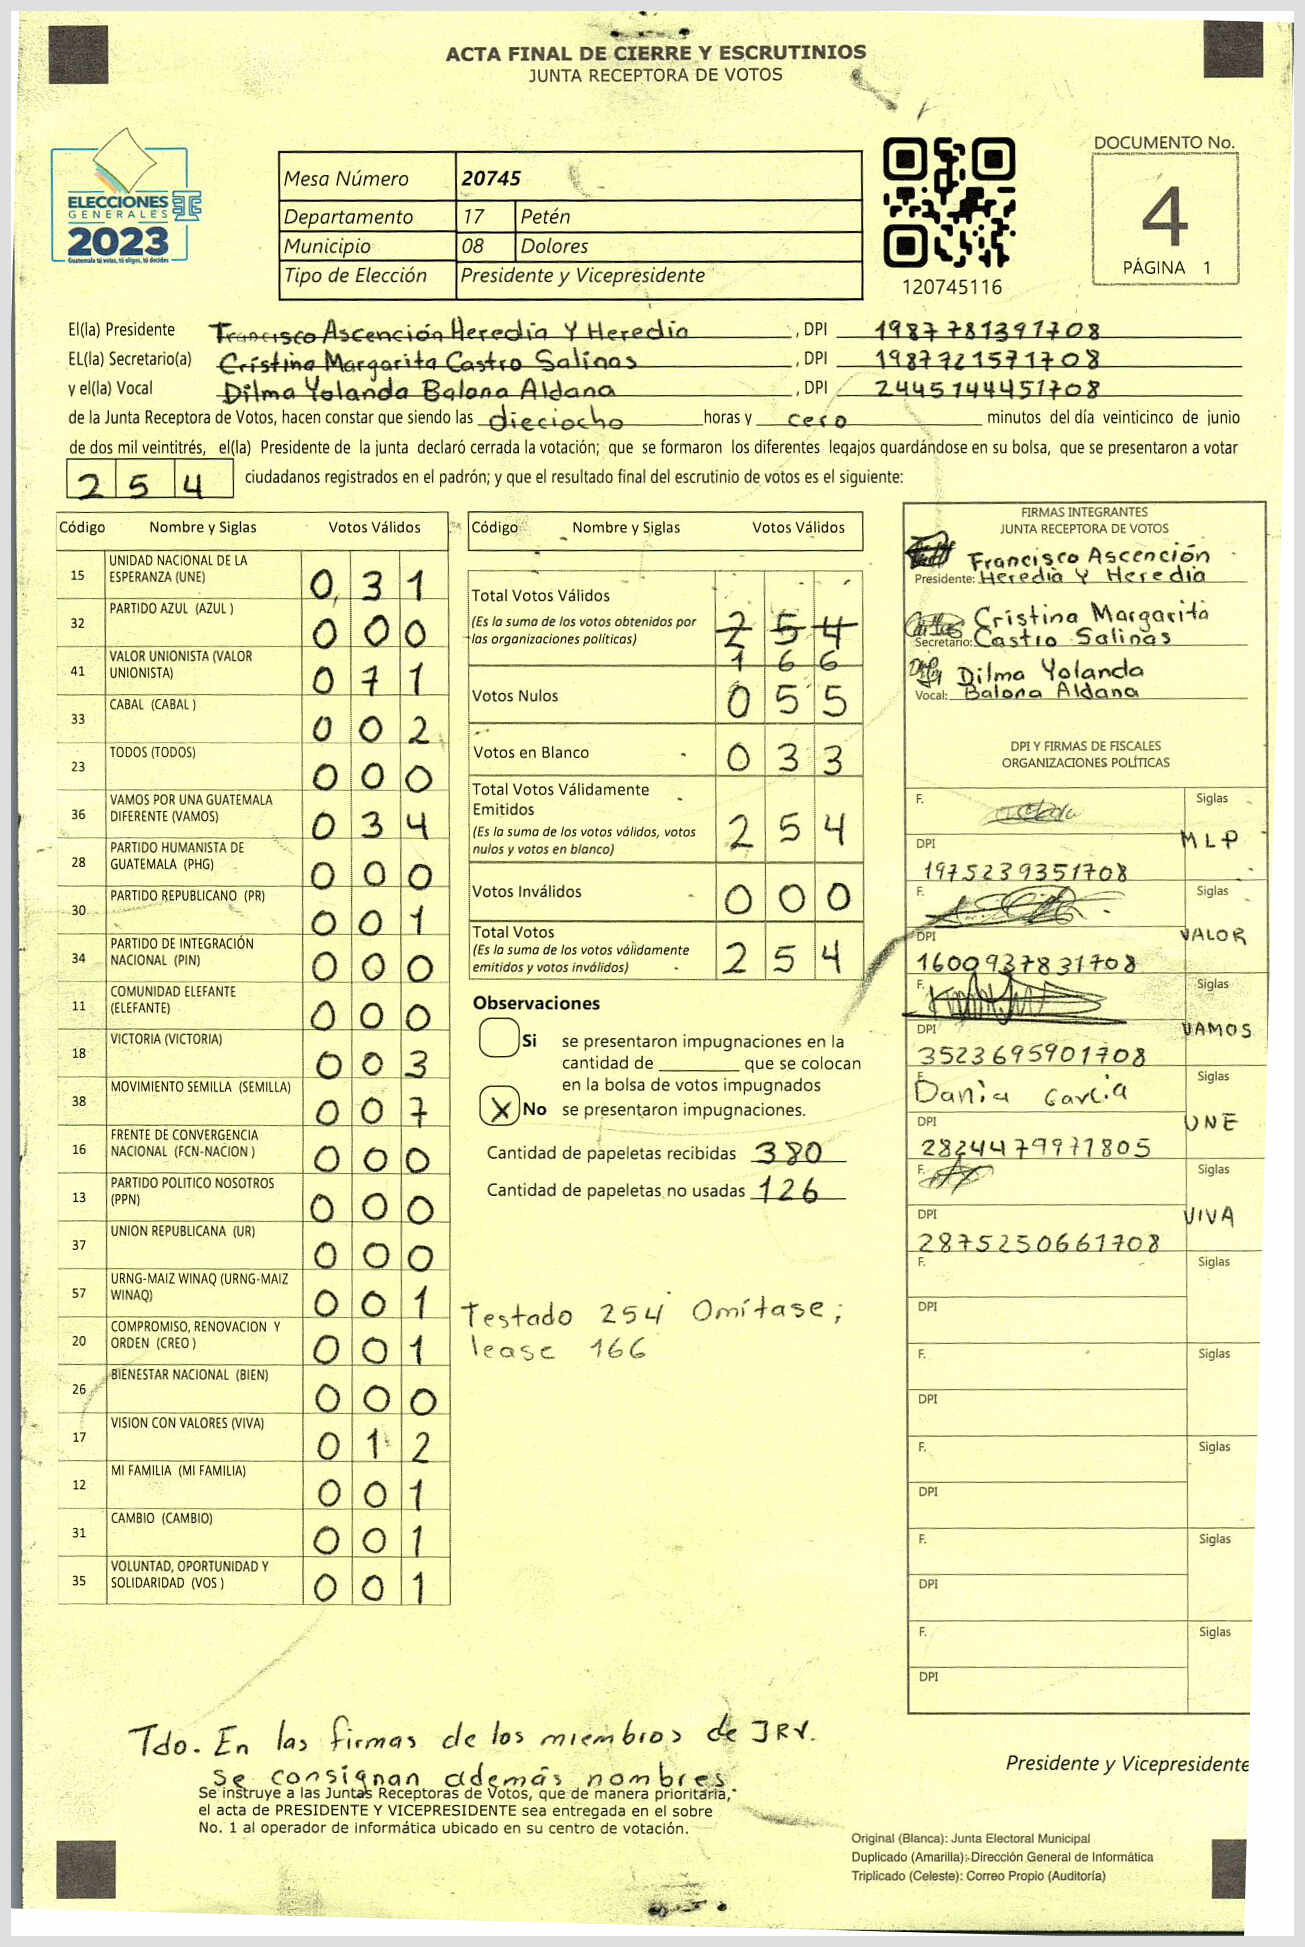 ACTA FINAL DE CIERRE Y ESCRUTINIOS
JUNTA RECEPTORA DE VOTOS
ELECCIONES
GENERALES
2023
Guatemala tú votas, tú eliges, tú decides
Mesa Número 20745
Departamento 17 Petén
Municipio 08 Dolores
Tipo de Elección Presidente y Vicepresidente
120745116
DOCUMENTO No.
4
PÁGINA 1
El(la) Presidente Francisco Ascención Heredia Y Heredia , DPI 1987781391708
EL(la) Secretario(a) Cristina Margarita Castro Salinas , DPI 1987721571708
y el(la) Vocal Dilma Yolanda Balona Aldana , DPI 2445144451708
de la Junta Receptora de Votos, hacen constar que siendo las dieciocho horas y cero minutos del día veinticinco de junio
de dos mil veintitrés, el(la) Presidente de la junta declaró cerrada la votación; que se formaron los diferentes legajos quardándose en su bolsa, que se presentaron a votar
254 ciudadanos registrados en el padrón; y que el resultado final del escrutinio de votos es el siguiente:
Código Nombre y Siglas Votos Válidos
15 UNIDAD NACIONAL DE LA
ESPERANZA (UNE) 0 3 1
32 PARTIDO AZUL (AZUL ) 0 0 0
41 VALOR UNIONISTA (VALOR
UNIONISTA) 0 7 1
33 CABAL (CABAL ) 0 0 2
23 TODOS (TODOS) 0 0 0
36 VAMOS POR UNA GUATEMALA
DIFERENTE (VAMOS) 0 3 4
28 PARTIDO HUMANISTA DE
GUATEMALA (PHG) 0 0 0
30 PARTIDO REPUBLICANO (PR) 0 0 1
34 PARTIDO DE INTEGRACIÓN
NACIONAL (PIN) 0 0 0
11 COMUNIDAD ELEFANTE
(ELEFANTE) 0 0 0
18 VICTORIA (VICTORIA) 0 0 3
38 MOVIMIENTO SEMILLA (SEMILLA) 0 0 7
16 FRENTE DE CONVERGENCIA
NACIONAL (FCN-NACION ) 0 0 0
13 PARTIDO POLITICO NOSOTROS
(PPN) 0 0 0
37 UNION REPUBLICANA (UR) 0 0 0
57 URNG-MAIZ WINAQ (URNG-MAIZ
WINAQ) 0 0 1
20 COMPROMISO, RENOVACION Y
ORDEN (CREO ) 0 0 1
26 BIENESTAR NACIONAL (BIEN) 0 0 0
17 VISION CON VALORES (VIVA) 0 1 2
12 MI FAMILIA (MI FAMILIA) 0 0 1
31 CAMBIO (CAMBIO) 0 0 1
35 VOLUNTAD, OPORTUNIDAD Y
SOLIDARIDAD (VOS ) 0 0 1
Código Nombre y Siglas Votos Válidos
Total Votos Válidos
(Es la suma de los votos obtenidos por
las organizaciones políticas) 2 5 4
1 6 6
Votos Nulos 0 5 5
Votos en Blanco 0 3 3
Total Votos Válidamente
Emitidos
(Es la suma de los votos válidos, votos
nulos y votos en blanco) 2 5 4
Votos Inválidos 0 0 0
Total Votos
(Es la suma de los votos válidamente
emitidos y votos inválidos) 2 5 4
Observaciones
Si se presentaron impugnaciones en la
cantidad de ________ que se colocan
en la bolsa de votos impugnados
X No se presentaron impugnaciones.
Cantidad de papeletas recibidas 380
Cantidad de papeletas no usadas 126
Testado 254 Omítase;
lease 166
FIRMAS INTEGRANTES
JUNTA RECEPTORA DE VOTOS
Francisco Ascención
Presidente: Heredia Y Heredia
Cristina Margarita
Secretario: Castro Salinas
Dilma Yolanda
Vocal: Balona Aldana
DPI Y FIRMAS DE FISCALES
ORGANIZACIONES POLÍTICAS
F. Siglas
DPI MLP
1975239351708
F. Siglas
DPI VALOR
1600937831708
F. Siglas
DPI VAMOS
3523695901708
F. Siglas
Dania Garcia
DPI UNE
2824479971805
F. Siglas
DPI VIVA
2875250661708
F. Siglas
DPI
F. Siglas
DPI
F. Siglas
DPI
F. Siglas
DPI
F. Siglas
DPI
Tdo. En las firmas de los miembros de JRV.
se consignan además nombres
Se instruye a las Juntas Receptoras de Votos, que de manera prioritaria,
el acta de PRESIDENTE Y VICEPRESIDENTE sea entregada en el sobre
No. 1 al operador de informática ubicado en su centro de votación.
Presidente y Vicepresidente
Original (Blanca): Junta Electoral Municipal
Duplicado (Amarilla): Dirección General de Informática
Triplicado (Celeste): Correo Propio (Auditoría)